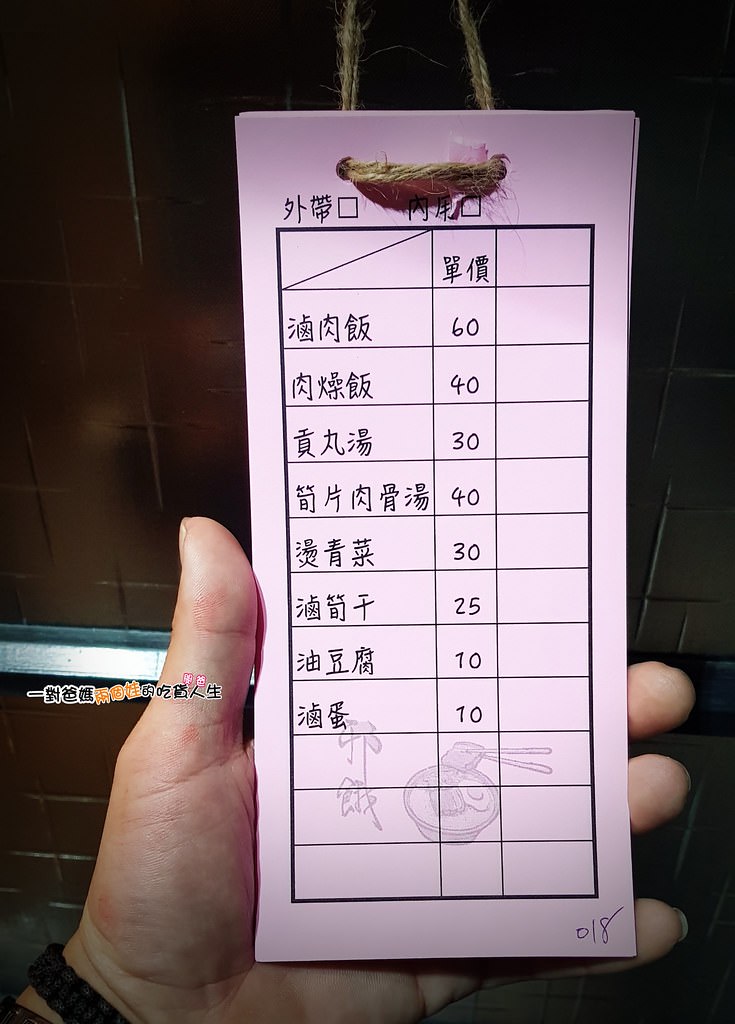 外帶□ 內用□
單價
滷肉飯 60
肉燥飯 40
貢丸湯 30
筍片肉骨湯 40
燙青菜 30
滷筍干 25
油豆腐 10
滷蛋 10
餓
018
卵爸
一對爸媽兩個娃的吃貨人生